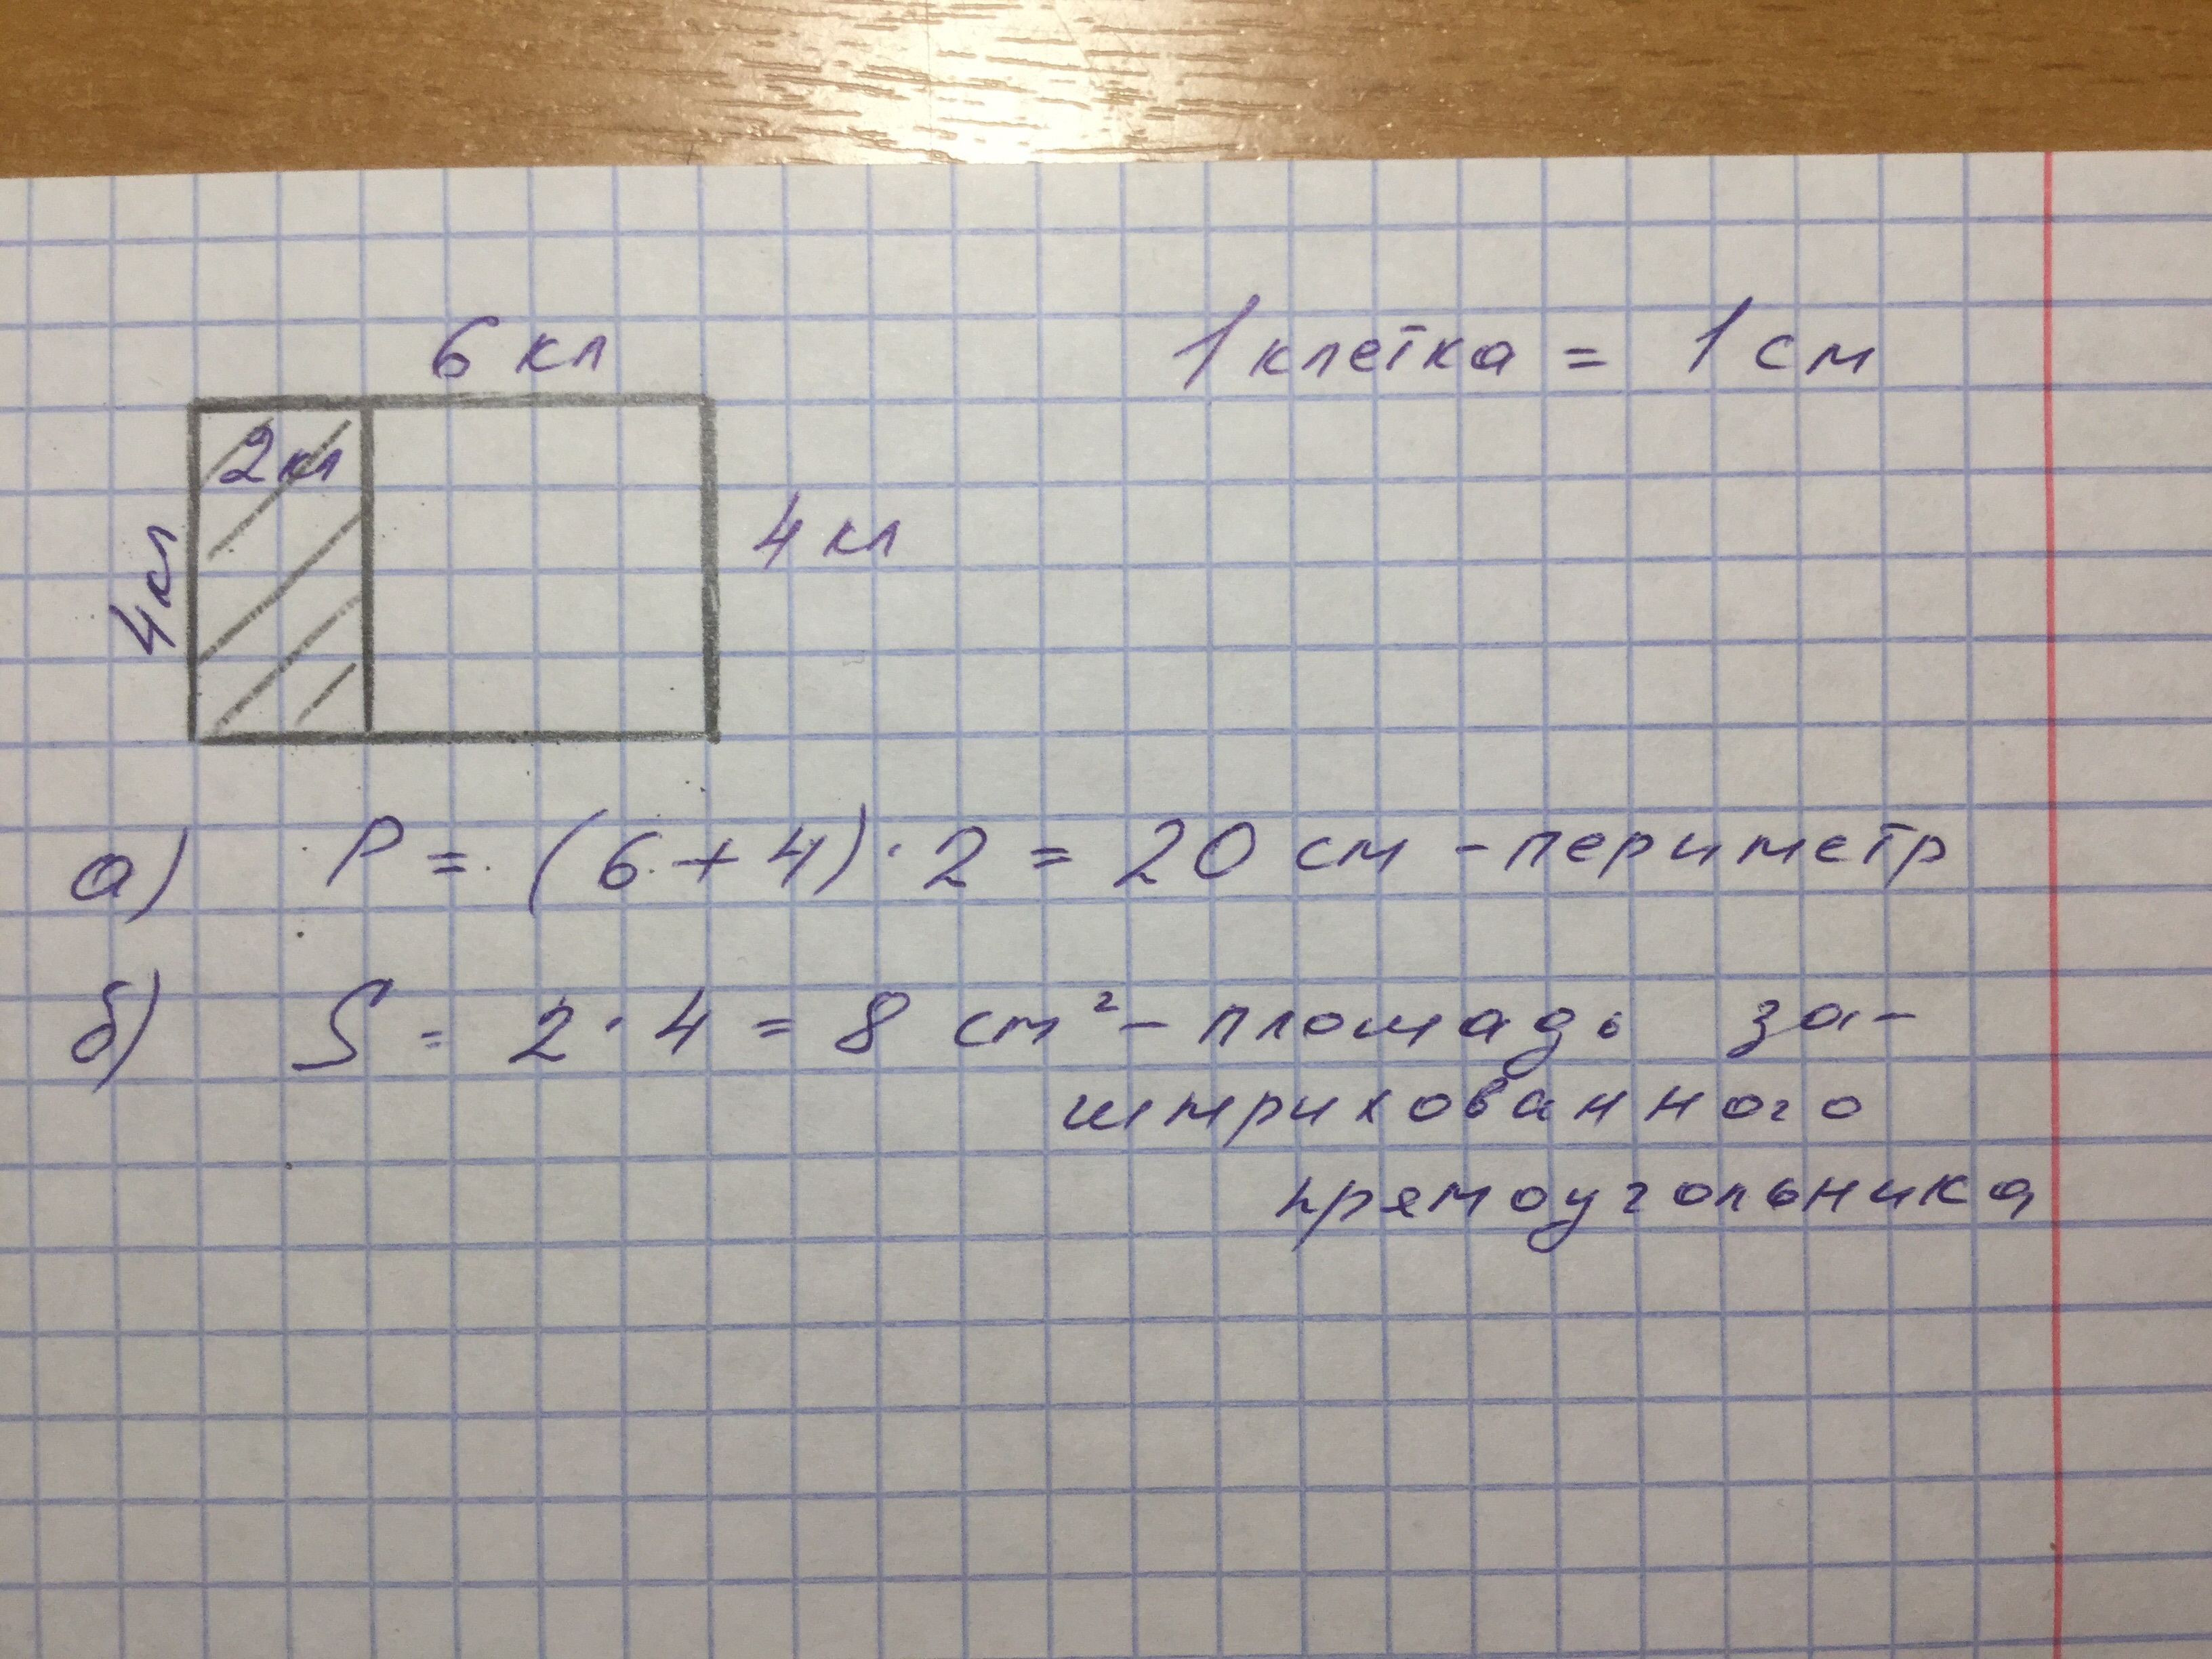 6 кл
1 клетка = 1 см
2 кл
4 кл
4 кл
а) P = (6 + 4) · 2 = 20 см - периметр
б) S = 2 · 4 = 8 см² - площадь за-
штрихованного
прямоугольника